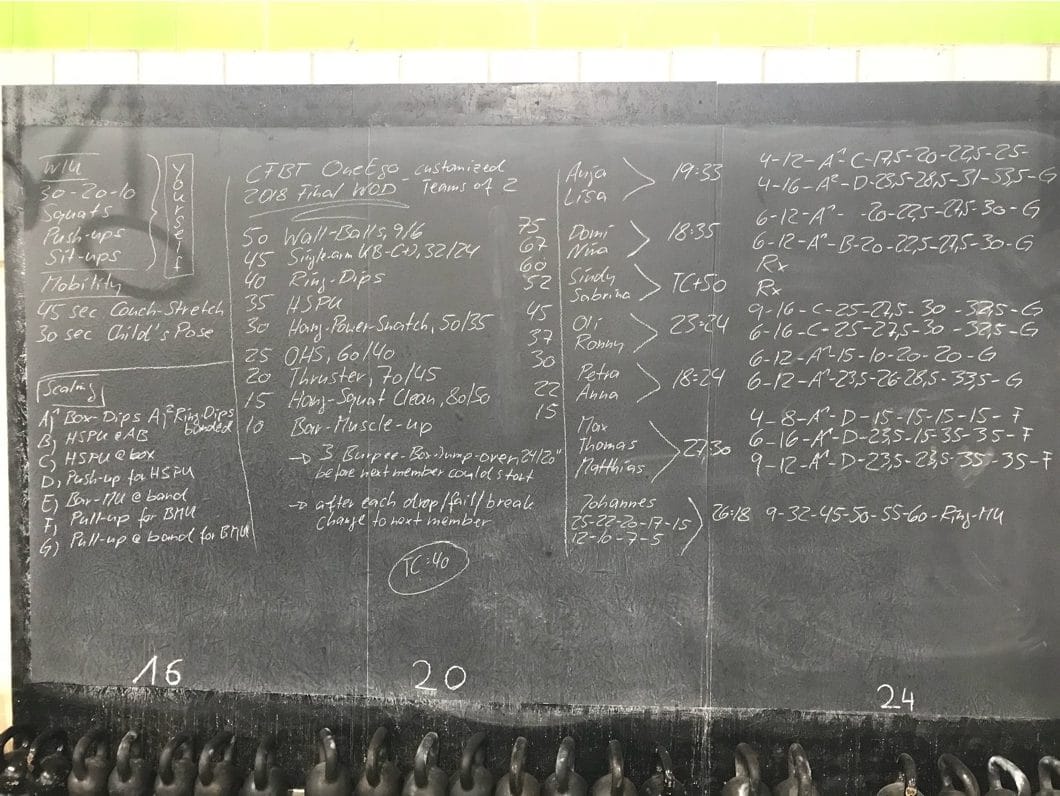 WIU
30-20-10
Squats
Push-ups
Sit-ups
Yourself
Mobility
45 sec Couch-Stretch
30 sec Child's Pose
Scaling
A)¹ Box-Dips A)² Ring Dips banded
B) HSPU @ AB
C) HSPU @ box
D) Push-up for HSPU
E) Bar-MU @ band
F) Pull-up for BMU
G) Pull-up @ band for BMU
CFBT OneEgo customized
2018 Final WOD - Teams of 2
50 Wall-Balls, 9/6 75
45 Single-arm KB-C+J, 32/24 67
40 Ring-Dips 60
35 HSPU 52
30 Hang-Power-Snatch, 50/35 45
25 OHS, 60/40 37
20 Thruster, 70/45 30
15 Hang-Squat Clean, 80/50 22
10 Bar-Muscle-up 15
→ 3 Burpee-Box-Jump-over, 24/20"
before next member could start
→ after each drop/fail/break
change to next member
TC:40
Anja 19:33 4-12-A¹-C-17,5-20-22,5-25-
Lisa 4-16-A²-D-23,5-28,5-31-33,5-G
Domi 18:35 6-12-A¹- -20-22,5-27,5-30-G
Nina 6-12-A¹-B-20-22,5-27,5-30-G
Sindy TC+50 Rx
Sabrina Rx
Oli 23:24 9-16-C-25-27,5-30-32,5-G
Ronny 6-16-C-25-27,5-30-32,5-G
Petra 18:24 6-12-A¹-15-10-20-20-G
Anna 6-12-A¹-23,5-26-28,5-33,5-G
Max 27,30 4-8-A¹-D-15-15-15-15-F
Thomas 6-16-A¹-D-23,5-15-35-35-F
Matthias 9-12-A¹-D-23,5-23,5-35-35-F
Johannes 26:18 9-32-45-50-55-60-Ring-MU
25-22-20-17-15
12-10-7-5
16 20 24